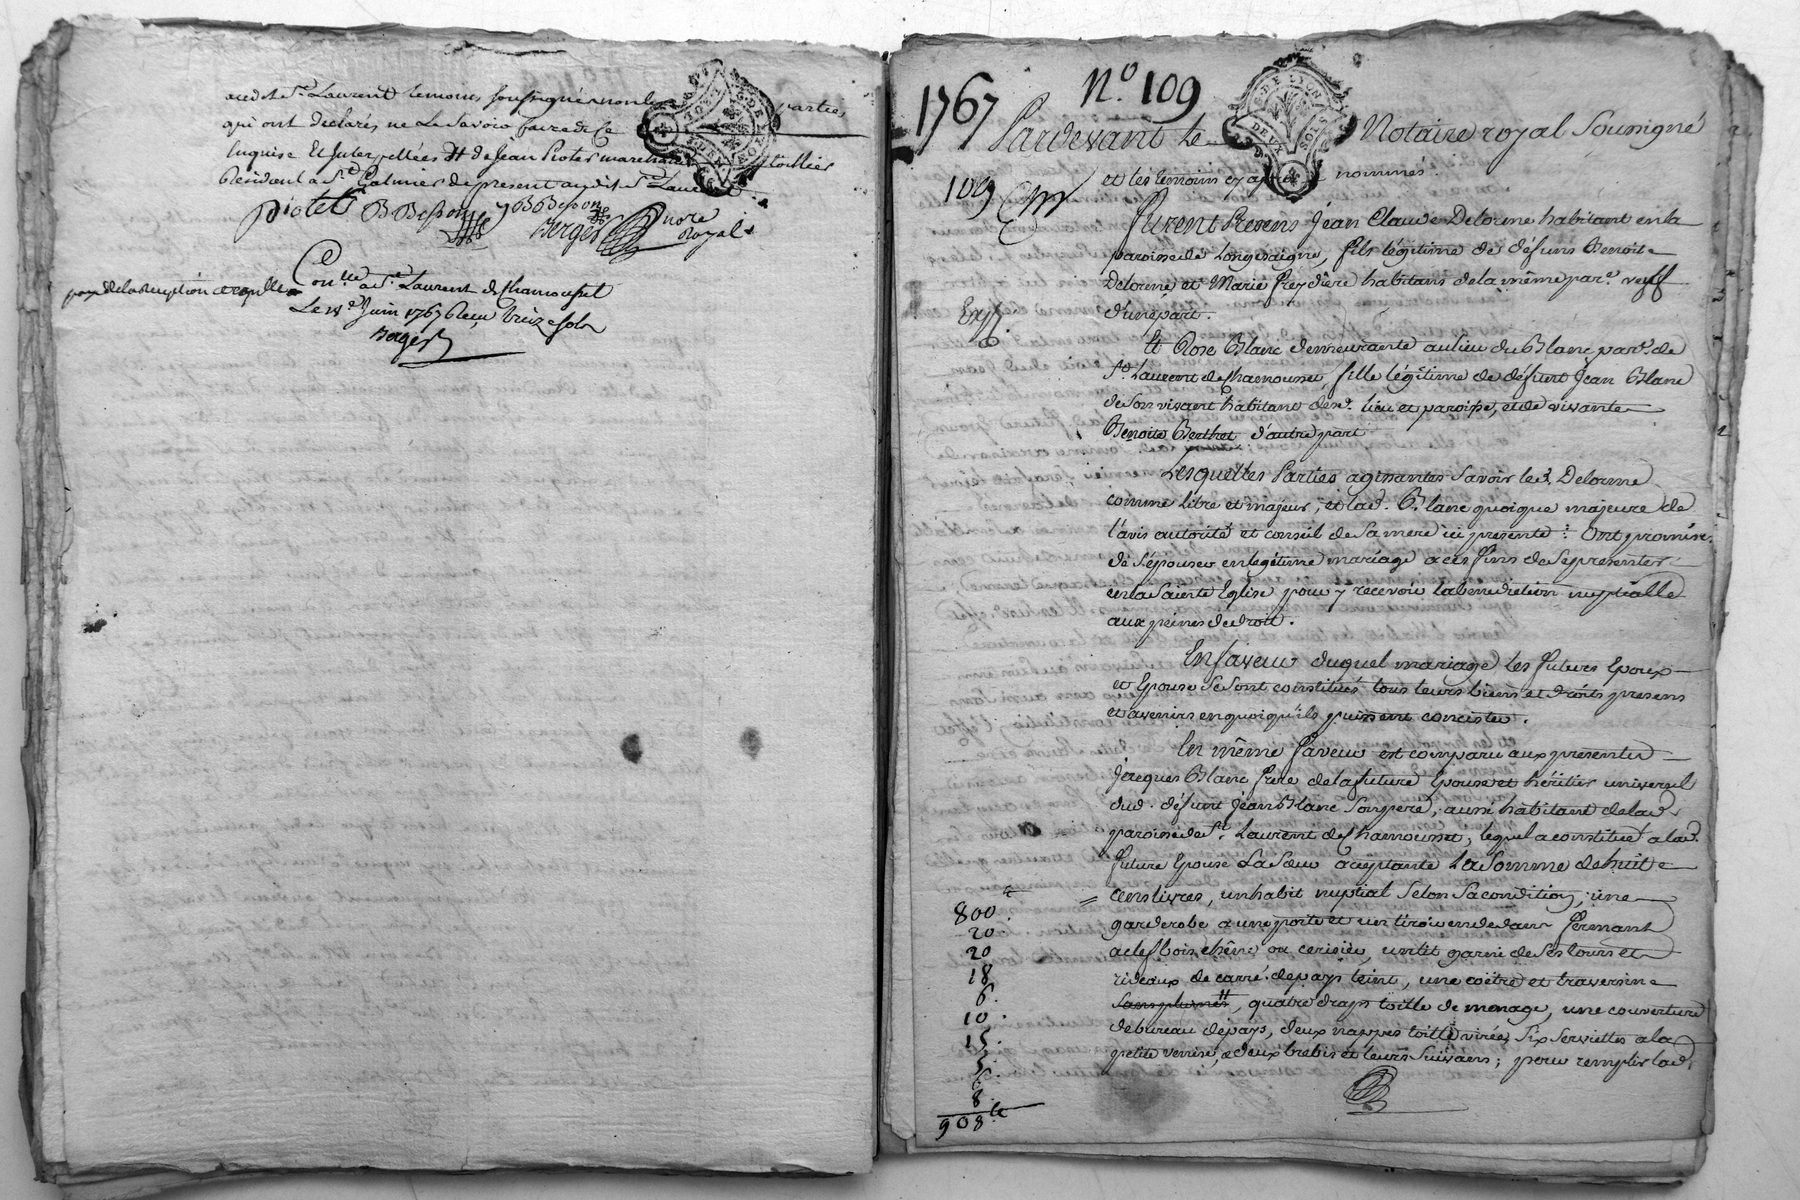 audit St. Laurent temoins soussignés non les parties
qui ont declarés ne le savoir faire de ce
Enquise Et Interpellées Et de Jean Piotet marchand
Residant a St. Galmier de present audit St. Laurent
piotet B Besson J B Besson
Berges nore
Royal
Con.lle a St. Laurent de Chamousset
Le Juin 1767 Reçu treize sols
pour de la reception et
Berges
1767 No. 109
G. DE LYON
DEUX SOLS
Pardevant Le Notaire royal Soussigné
et les temoins cy après nommés.
109
Furent Presens Jean Claude Delorme habitant en la
paroisse de Longesaigne, fils légitime de défuns Benoit
Delorme et Marie Freydière habitans de la même par.e
d'une part.
Exp
Et Rose Blanc demeurante au lieu du Blanc par.e de
St. Laurent de Chamousset, fille légitime de défunt Jean Blanc
de son vivant habitant desd. lieu et paroisse, et de vivante
Benoite Berthet d'autre part
Lesquelles Parties agissantes savoir led. Delorme
comme libre et majeur, et lad. Blanc quoique majeure de
l'avis autorité et conseil de sa mere ici presente : Ont promis
de s'épouser en légitime mariage a ces fins de se presenter
en la Sainte Eglise pour y recevoir la benediction nuptialle
aux peines de droit.
En faveur duquel mariage les futurs Epoux
et Epouse se sont constitués tous leurs biens et droits presens
et avenirs en quoi qu'ils puissent concister.
En même faveur est comparu aux presentes
Jacques Blanc frere de la future Epouse et héritier universel
dud. défunt Jean Blanc son pere, aussi habitant de lad.
paroisse de St. Laurent de Chamousset, lequel a constitué a lad.
future Epouse sa sœur acceptante la somme de huit
cens livres, un habit nuptial selon sa condition, une
800
garderobe a une porte et un tiroir en dedans fermant
20
a clef bois chêne ou cerisier, un lit garni de ses tours et
20
rideaux de carré de pays teint, une coëtre et traversine
18
sans plumes, quatre draps toille de menage, une couverture
6.
de bureau de pays, deux nappes toille virée, six serviettes a la
10.
petite venise, deux brebis et leurs suivans ; pour remplir lad.
15.
5.
6.
8.
908